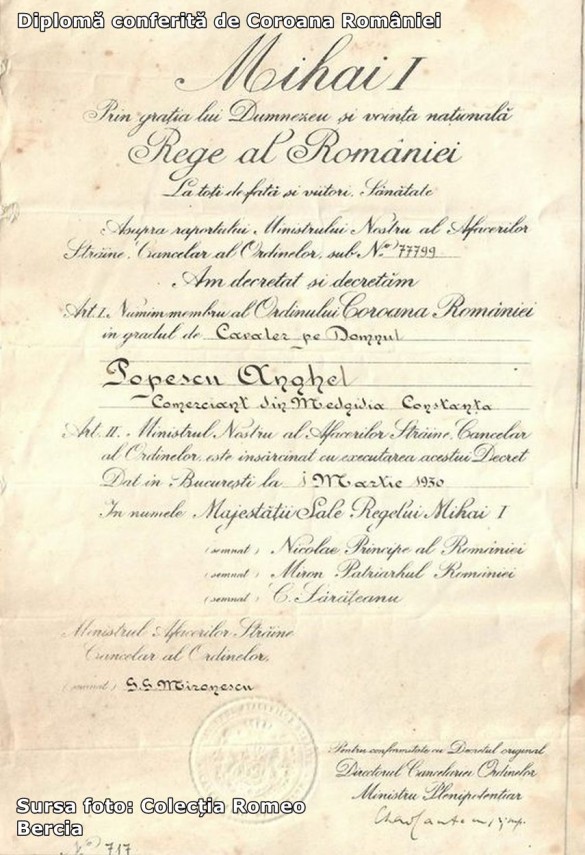 Diplomă conferită de Coroana României
Mihai I
Prin grația lui Dumnezeu și voința națională
Rege al României
La toți de față și viitori, Sănătate
Asupra raportului Ministrului Nostru al Afacerilor
Străine, Cancelar al Ordinelor, sub No. 77799
Am decretat și decretăm
Art. I. Numim membru al Ordinului Coroana României
in gradul de Cavaler pe Domnul
Popescu Anghel
Comerciant din Medgidia Constanța
Art. II. Ministrul Nostru al Afacerilor Străine, Cancelar
al Ordinelor, este însărcinat cu executarea acestui Decret
Dat in București la 1 Martie 1930
In numele Majestății Sale Regelui Mihai I
(semnat) Nicolae Principe al României
(semnat) Miron Patriarhul României
(semnat) C. Sărățeanu
Ministrul Afacerilor Străine
Cancelar al Ordinelor,
(semnat) G. G. Mironescu
Pentru conformitate cu Decretul original
Directorul Cancelariei Ordinelor
Ministru Plenipotențiar
Sursa foto: Colecția Romeo
Bercia
No. 717